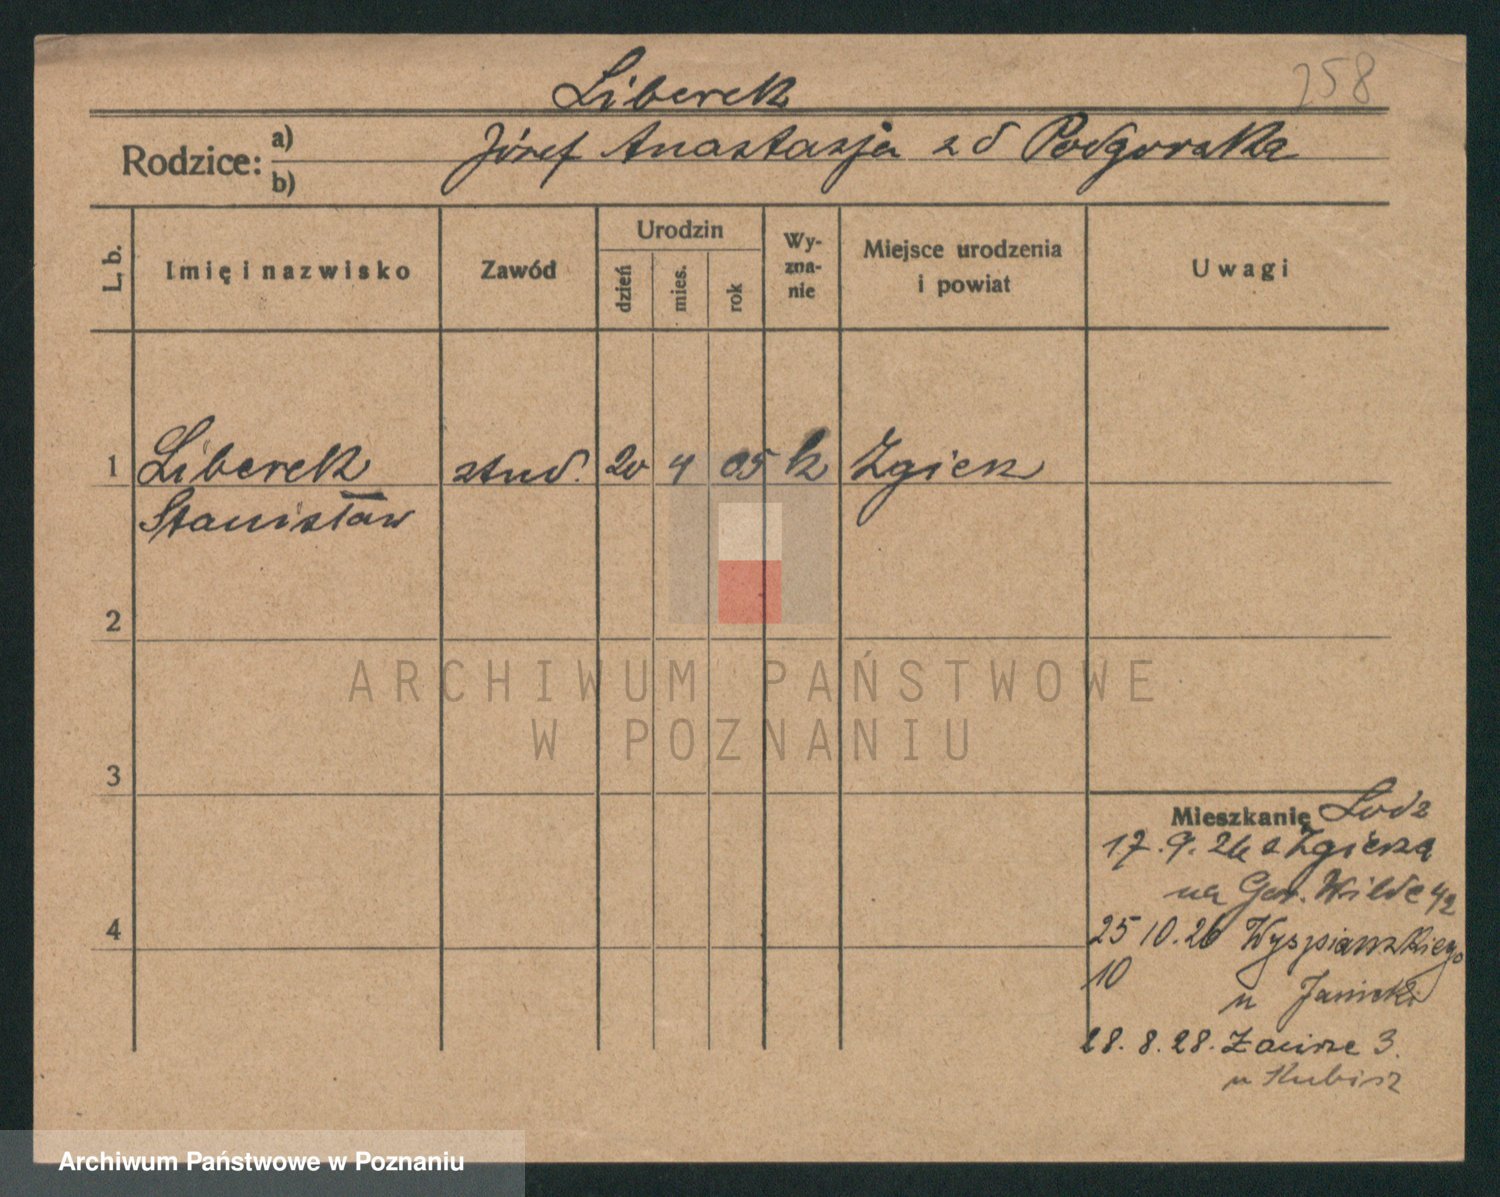 258
Liberek
Rodzice: a) b)
Józef Anastazja z d Podgorska
L. b.
Imię i nazwisko
Zawód
Urodzin
dzień
mies.
rok
Wy-
zna-
nie
Miejsce urodzenia
i powiat
Uwagi
1 Liberek stud. 20 4 05 k Zgierz
Stanisław
2
3
4
Mieszkanie Lodz
17. 9. 26 z Zgierza
na Gor. Wilde 42
25 10. 26 Wyspianskiego
10
u Janicki
28. 8. 28. Zacisze 3.
u Kubisz
ARCHIWUM PAŃSTWOWE
W POZNANIU
Archiwum Państwowe w Poznaniu